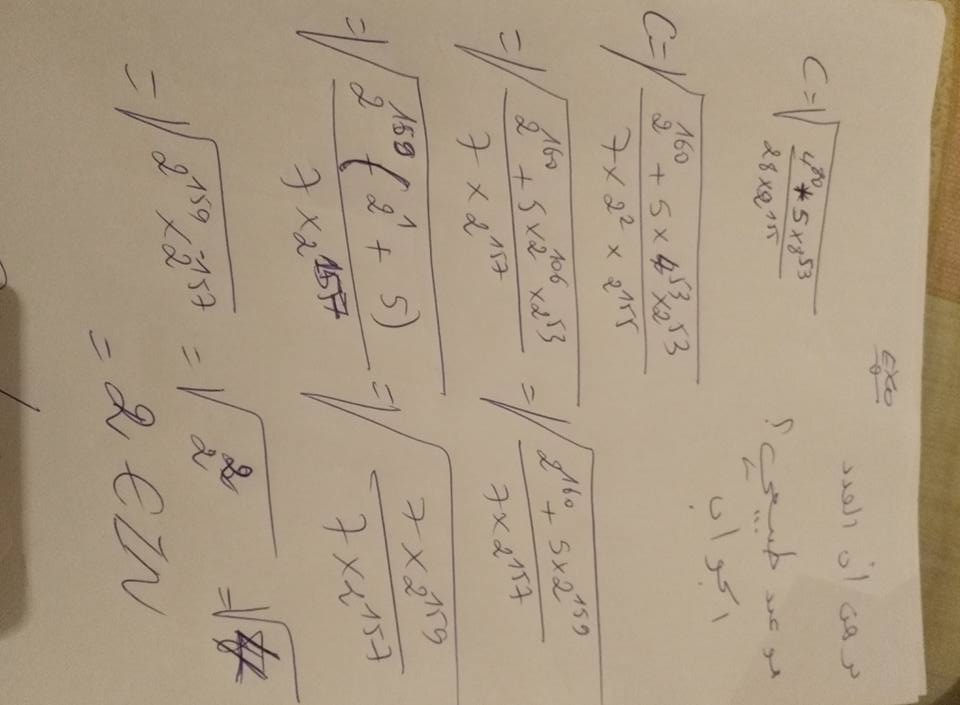 Exo
برهن ان العدد
هو عدد طبيعي؟
الجواب
C = √(4^80 + 5×8^53 / 28×2^155)
C = √(2^160 + 5×4^53×2^53 / 7×2^2×2^155)
= √(2^160 + 5×2^106×2^53 / 7×2^157) = √(2^160 + 5×2^159 / 7×2^157)
= √(2^159(2^1 + 5) / 7×2^157) = √(7×2^159 / 7×2^157)
= √(2^159×2^-157) = √(2^2) = √
= 2 ∈ IN